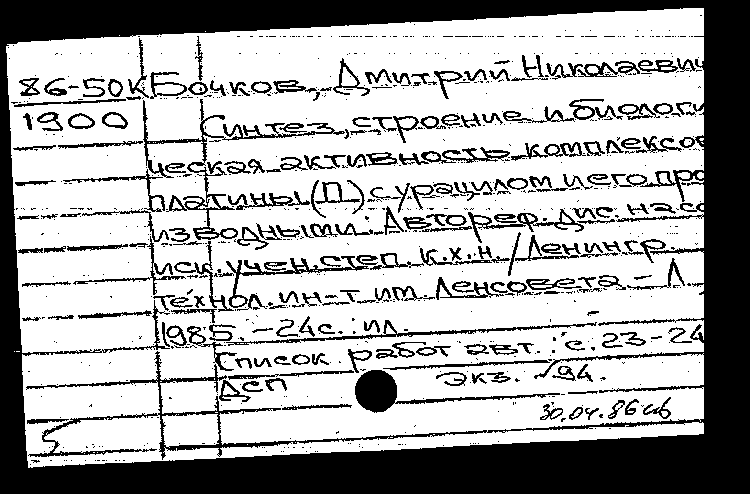 86-50К Бочков, Дмитрий Николаевич
1900 Синтез, строение и биологи
ческая активность комплексов
платины (П) с урацилом и его про
изводными: Автореф. дис. на со
иск. учен. степ. к.х.н. / Ленингр.
технол. ин-т им Ленсовета - Л
1985. - 24с.: ил.
Список работ авт.: с. 23-24
ДСП Экз. №94.
30.04.86
5